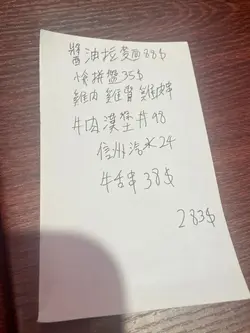 醬油拉麵88$
燒拼盤35$
雞肉 雞胃 雞皮串
牛肉漢堡井98
信州汽水24
牛舌串38$
283$